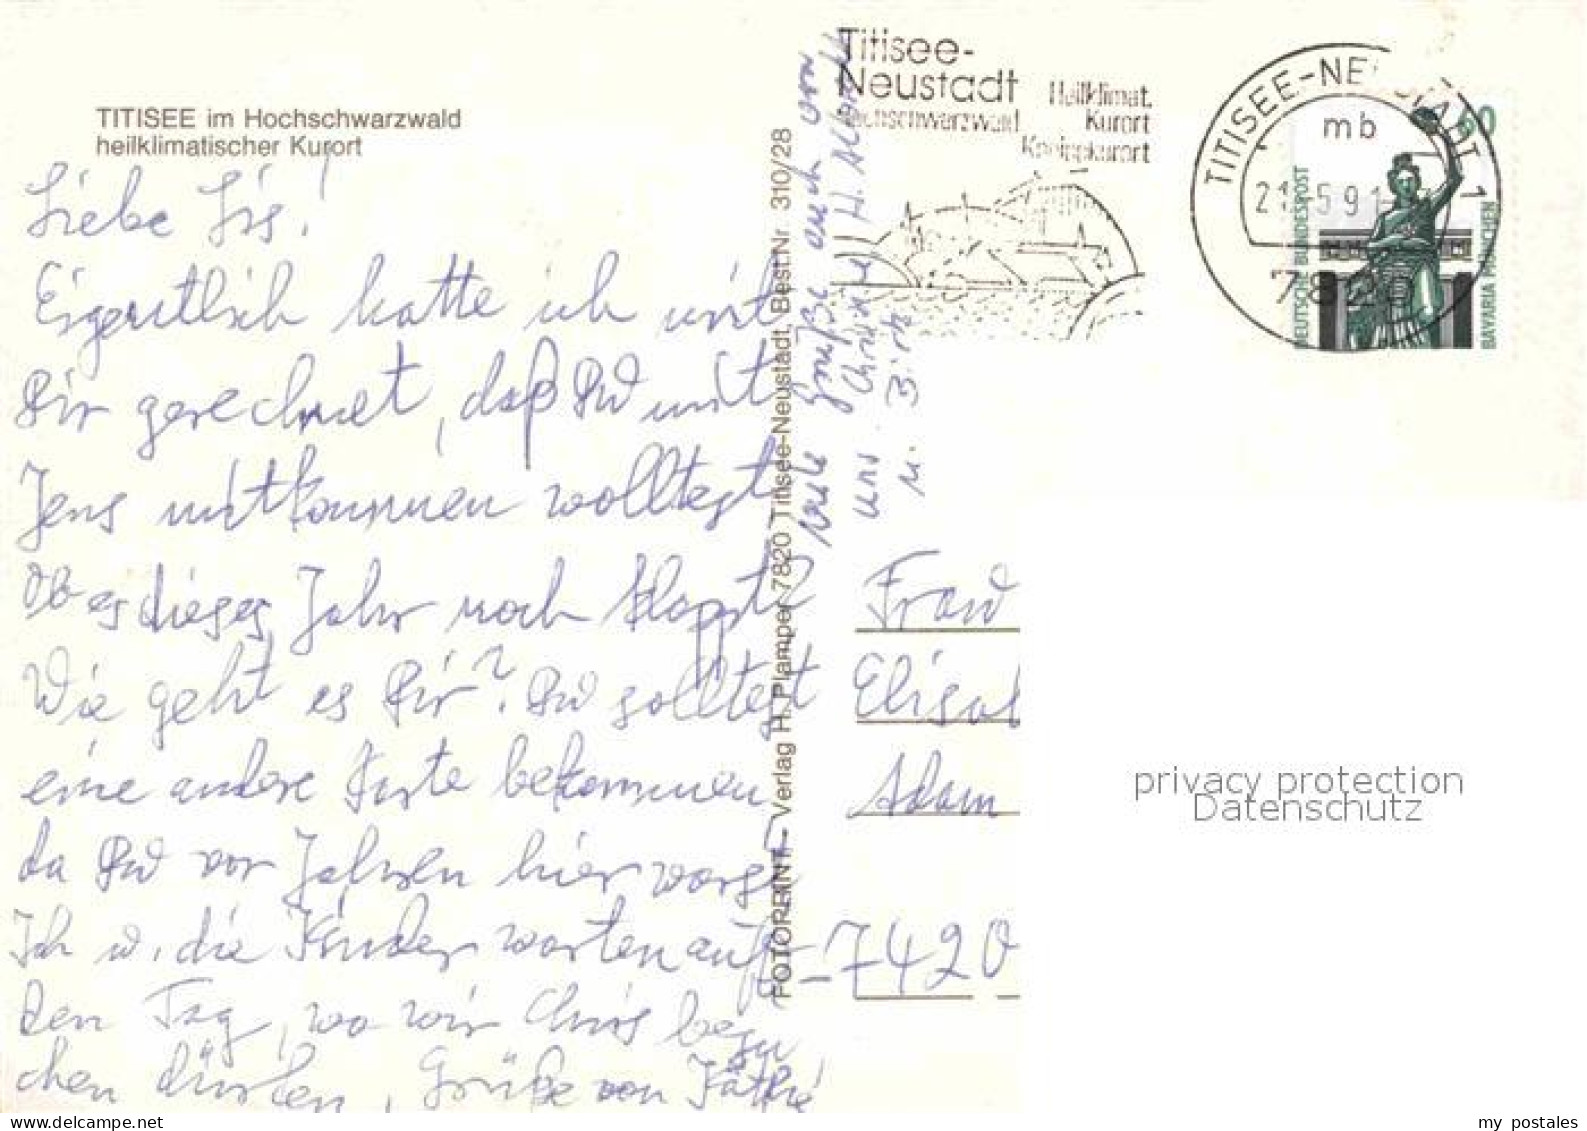 TITISEE im Hochschwarzwald
heilklimatischer Kurort
Liebe Lis!
Eigentlich hatte ich mit
Dir gerechnet, daß Du mit
Jens mitkommen wolltest
Ob es dieses Jahr noch klappt?
Wie geht es Dir? Du solltest
eine andere Karte bekommen
da Du vor Jahren hier warst
Ich u. die Kinder warten auf
den Tag, wo wir Chris besu
chen dürfen, Grüße von Käthe
viele Grüße auch von
uns
u.
FOTOPRINT - Verlag H. Plamper 7820 Titisee-Neustadt, Best.Nr. 310/28
Titisee-
Neustadt
Hochschwarzwald
Heilklimat.
Kurort
Kneippkurort
TITISEE-NEUSTADT 1
mb
21.-5.91
DEUTSCHE BUNDESPOST
60
BAVARIA MÜNCHEN
Frau
Elisa
Adam
7420
privacy protection
Datenschutz
www.delcampe.net
my_postales